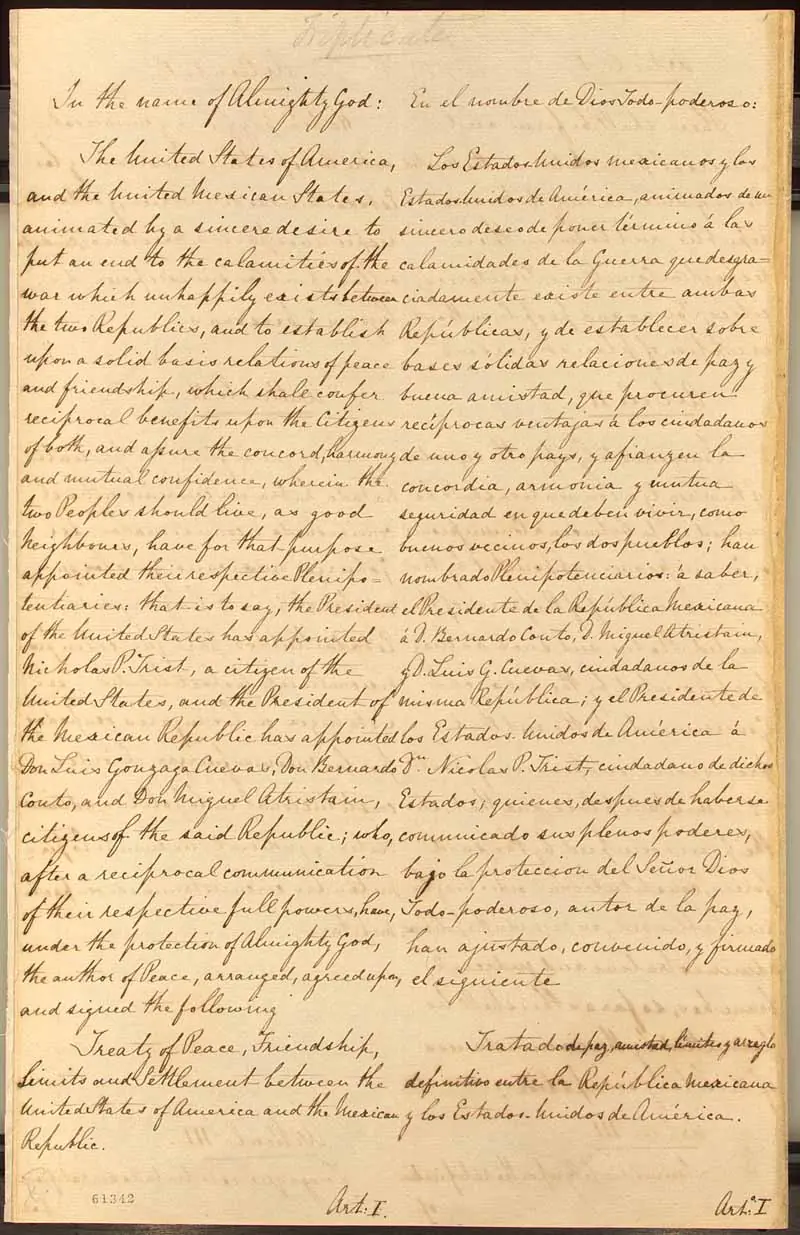 Triplicate
In the name of Almighty God:
The United States of America,
and the United Mexican States,
animated by a sincere desire to
put an end to the calamities of the
war which unhappily exists between
the two Republics, and to establish
upon a solid basis relations of peace
and friendship, which shall confer
reciprocal benefits upon the Citizens
of both, and assure the concord, harmony
and mutual confidence, wherein the
two Peoples should live, as good
Neighbours, have for that purpose
appointed their respective Plenipo=
tentiaries: that is to say, the President
of the United States has appointed
Nicholas P. Trist, a citizen of the
United States, and the President of
the Mexican Republic has appointed
Don Luis Gonzaga Cuevas, Don Bernardo
Couto, and Don Miguel Atristain,
citizens of the said Republic; who,
after a reciprocal communication
of their respective full powers, have,
under the protection of Almighty God,
the author of Peace, arranged, agreed upon,
and signed the following
Treaty of Peace, Friendship,
Limits and Settlement between the
United States of America and the Mexican
Republic.
61342
Art: I.
En el nombre de Dios Todo-poderoso:
Los Estados Unidos mexicanos y los
Estados Unidos de América, animados de un
sincero deseo de poner término á las
calamidades de la Guerra que desgra=
ciadamente existe entre ambas
Repúblicas, y de establecer sobre
bases sólidas relaciones de paz y
buena amistad, que procuren
recíprocas ventajas á los ciudadanos
de uno y otro pays, y afianzen la
concordia, armonia y mutua
seguridad en que deben vivir, como
buenos vecinos, los dos pueblos; han
nombrado Plenipotenciarios: á saber,
el Presidente de la República Mexicana
á D. Bernardo Couto, D. Miguel Atristain,
y D. Luis G. Cuevas, ciudadanos de la
misma República; y el Presidente de
los Estados-Unidos de América á
Dn. Nicolas P. Trist, ciudadano de dichos
Estados; quienes, despues de haberse
comunicado sus plenos poderes,
bajo la proteccion del Señor Dios
Todo-poderoso, autor de la paz,
han ajustado, convenido, y firmado
el siguiente
Tratado de paz, amistad, límites y arreglo
definitivo entre la República Mexicana
y los Estados-Unidos de América.
Arto. I